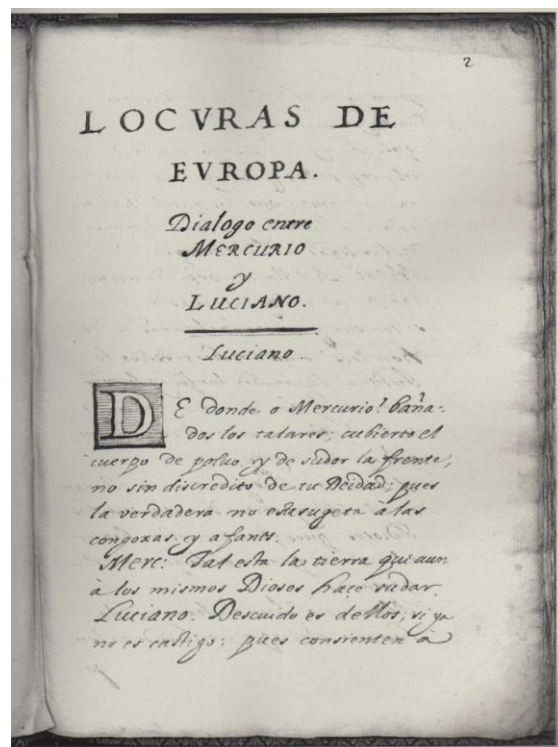 2
LOCVRAS DE
EVROPA.
Dialogo entre
MERCURIO
y
LUCIANO.
Luciano.
DE donde o Mercurio? baña-
dos los talares; cubierto el
cuerpo de poluo, y de sudor la frente,
no sin discredito de tu Deidad; pues
la verdadera no esta sugeta à las
congoxas y afanes.
Merc: Tal esta la tierra qui aun
à los mismos Dioses hace sudar.
Luciano. Descuido es dellos, si ya
no es castigo: pues consienten à